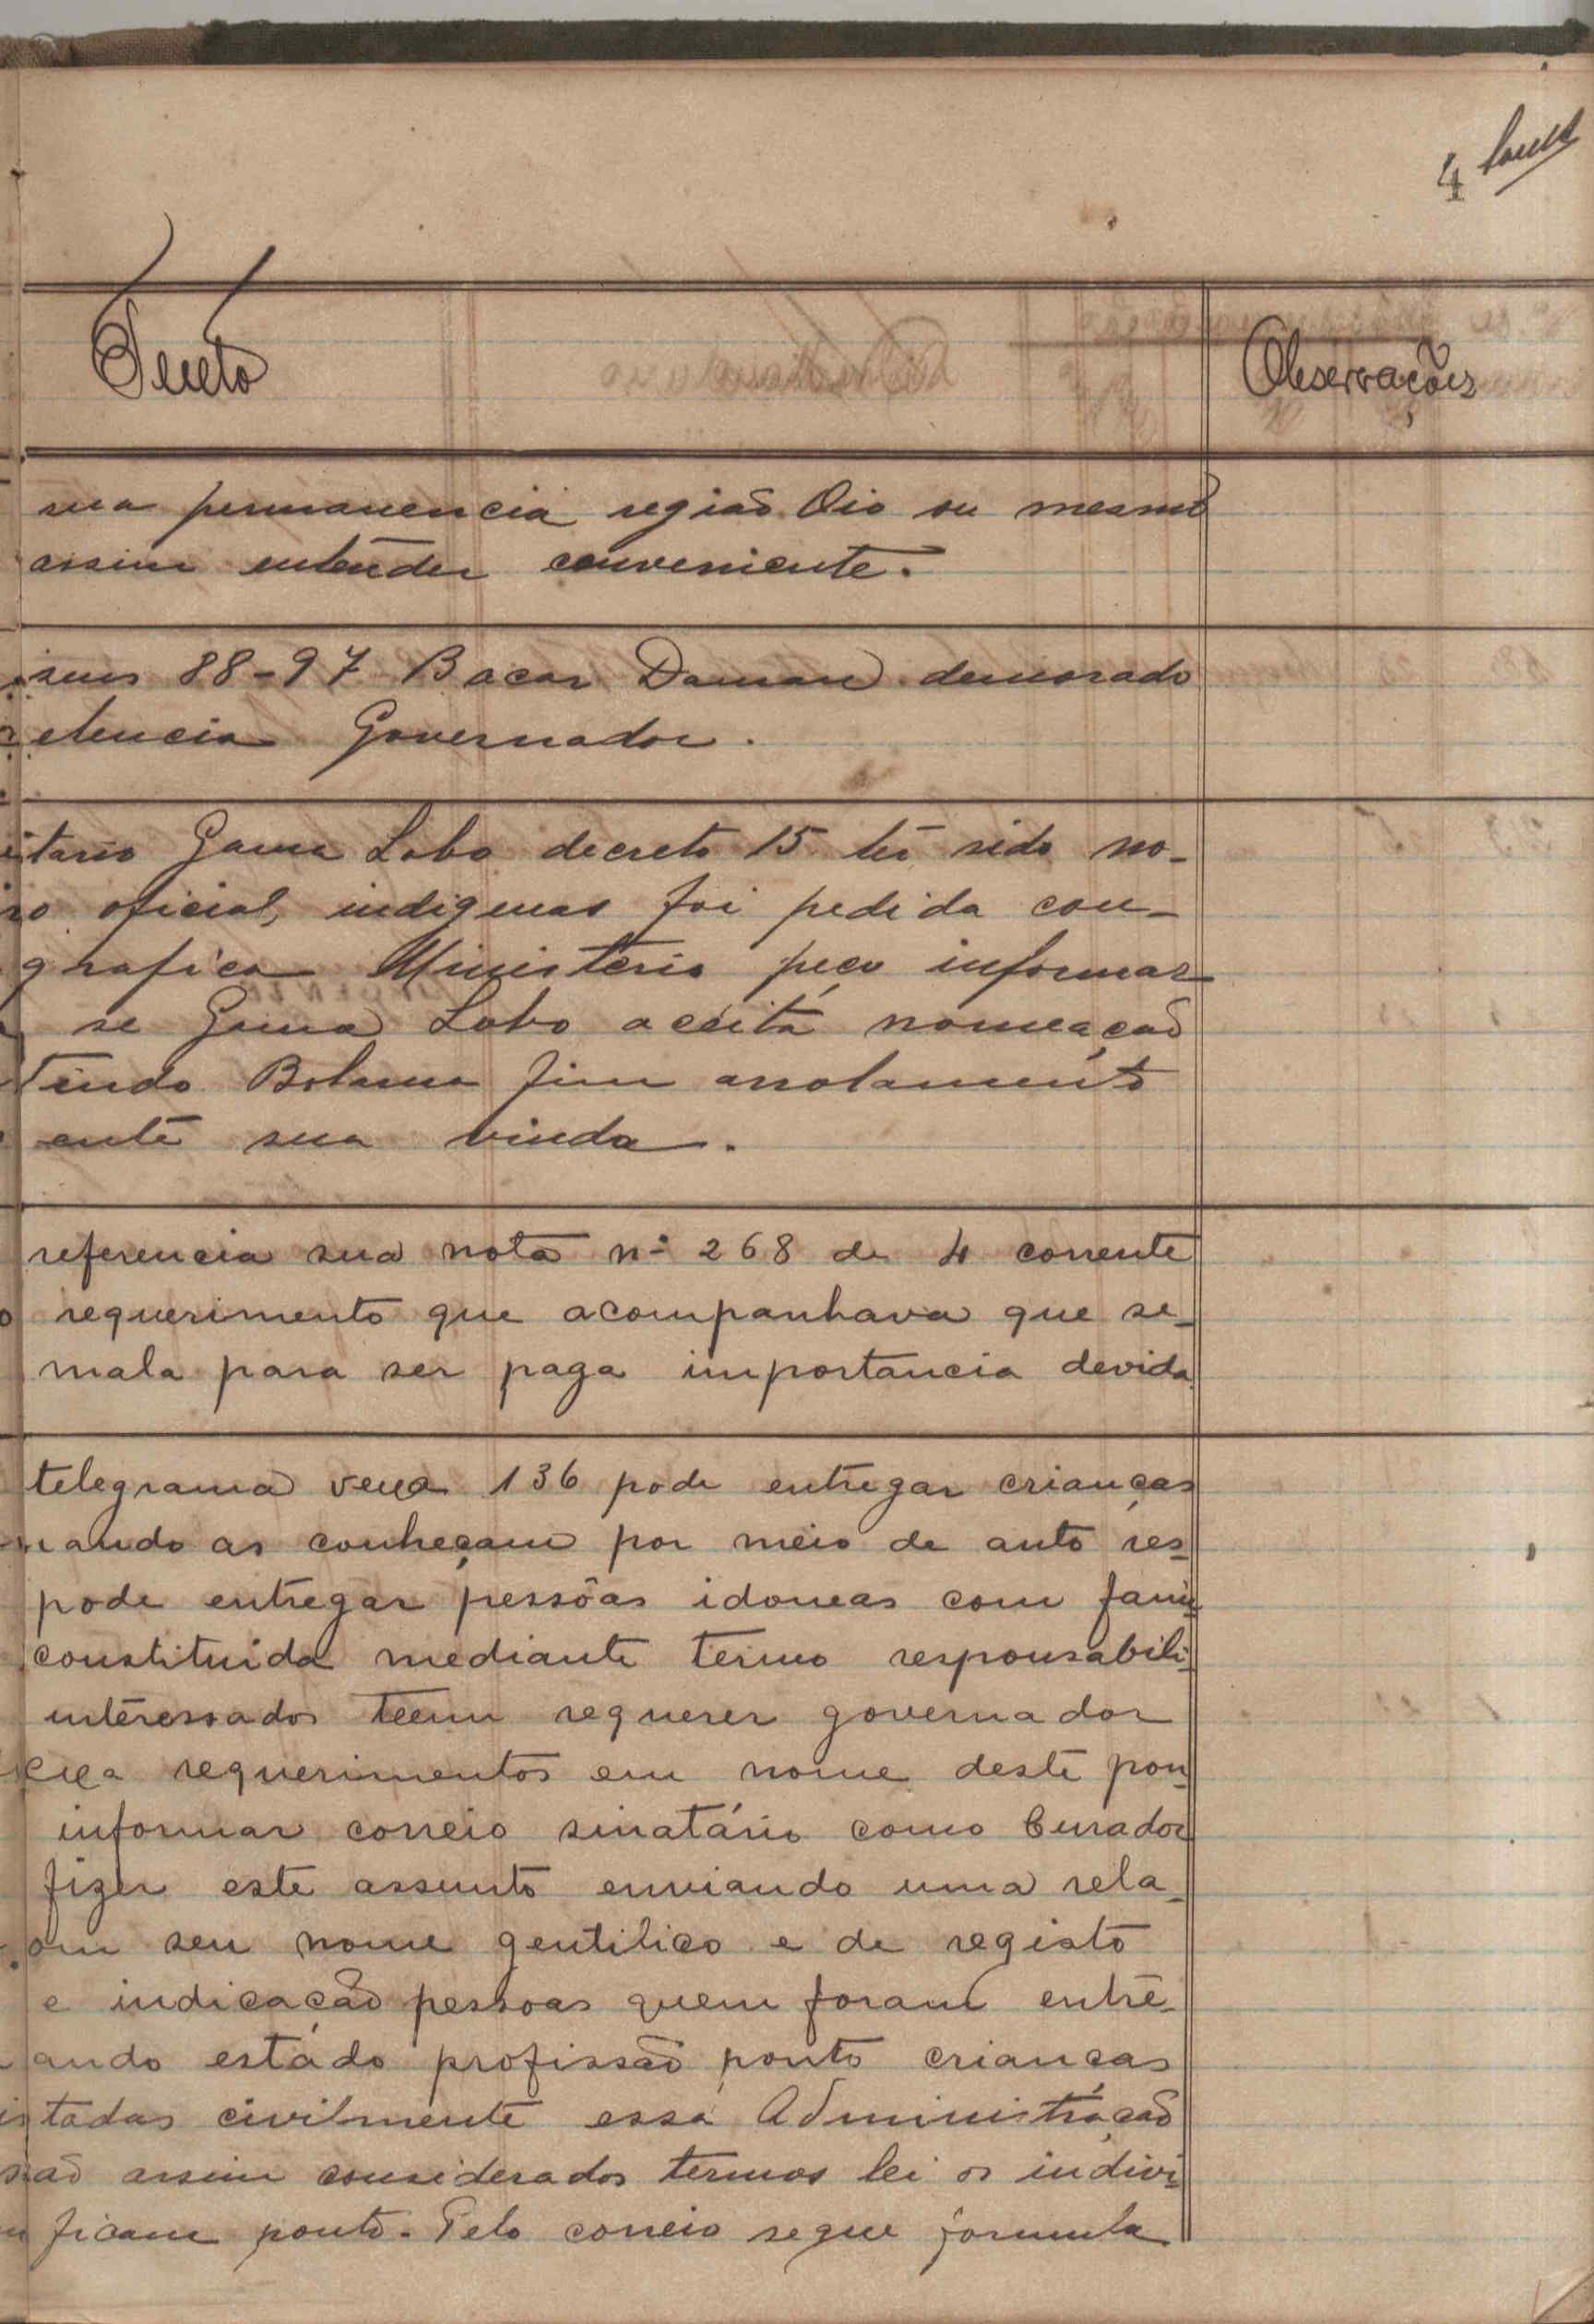 4
Texto
Observações
sua permanencia região Oio ou mesmo
assim entender conveniente.
88-97 Bacar Daman demorado
Governador.
Gama Lobo decreto 15 ter sido no-
oficial, indigenas foi pedida con-
grafica Ministério peço informar
se Gama Lobo aceita nomeação
Bolama fim arrolamento
sua vinda.
referencia sua nota nº 268 de 4 corrente
o requerimento que acompanhava que se-
mala para ser paga importancia devida
telegrama vexa 136 pode entregar crianças
ando as conheçam por meio de auto res-
pode entregar pessôas idoneas com fami-
constituida mediante termo responsabili-
intéressados teem requerer governador
requerimentos em nome deste pon-
informar correio sinatário como Curador
fizer este assunto enviando uma rela-
om seu nome gentilico e de registo
e indicação pessoas quem foram entre-
ando estado profissão ponto crianças
tadas civilmente essa Administração
assim considerados termos lei os indivi-
ficam ponto. Pelo correio segue formula